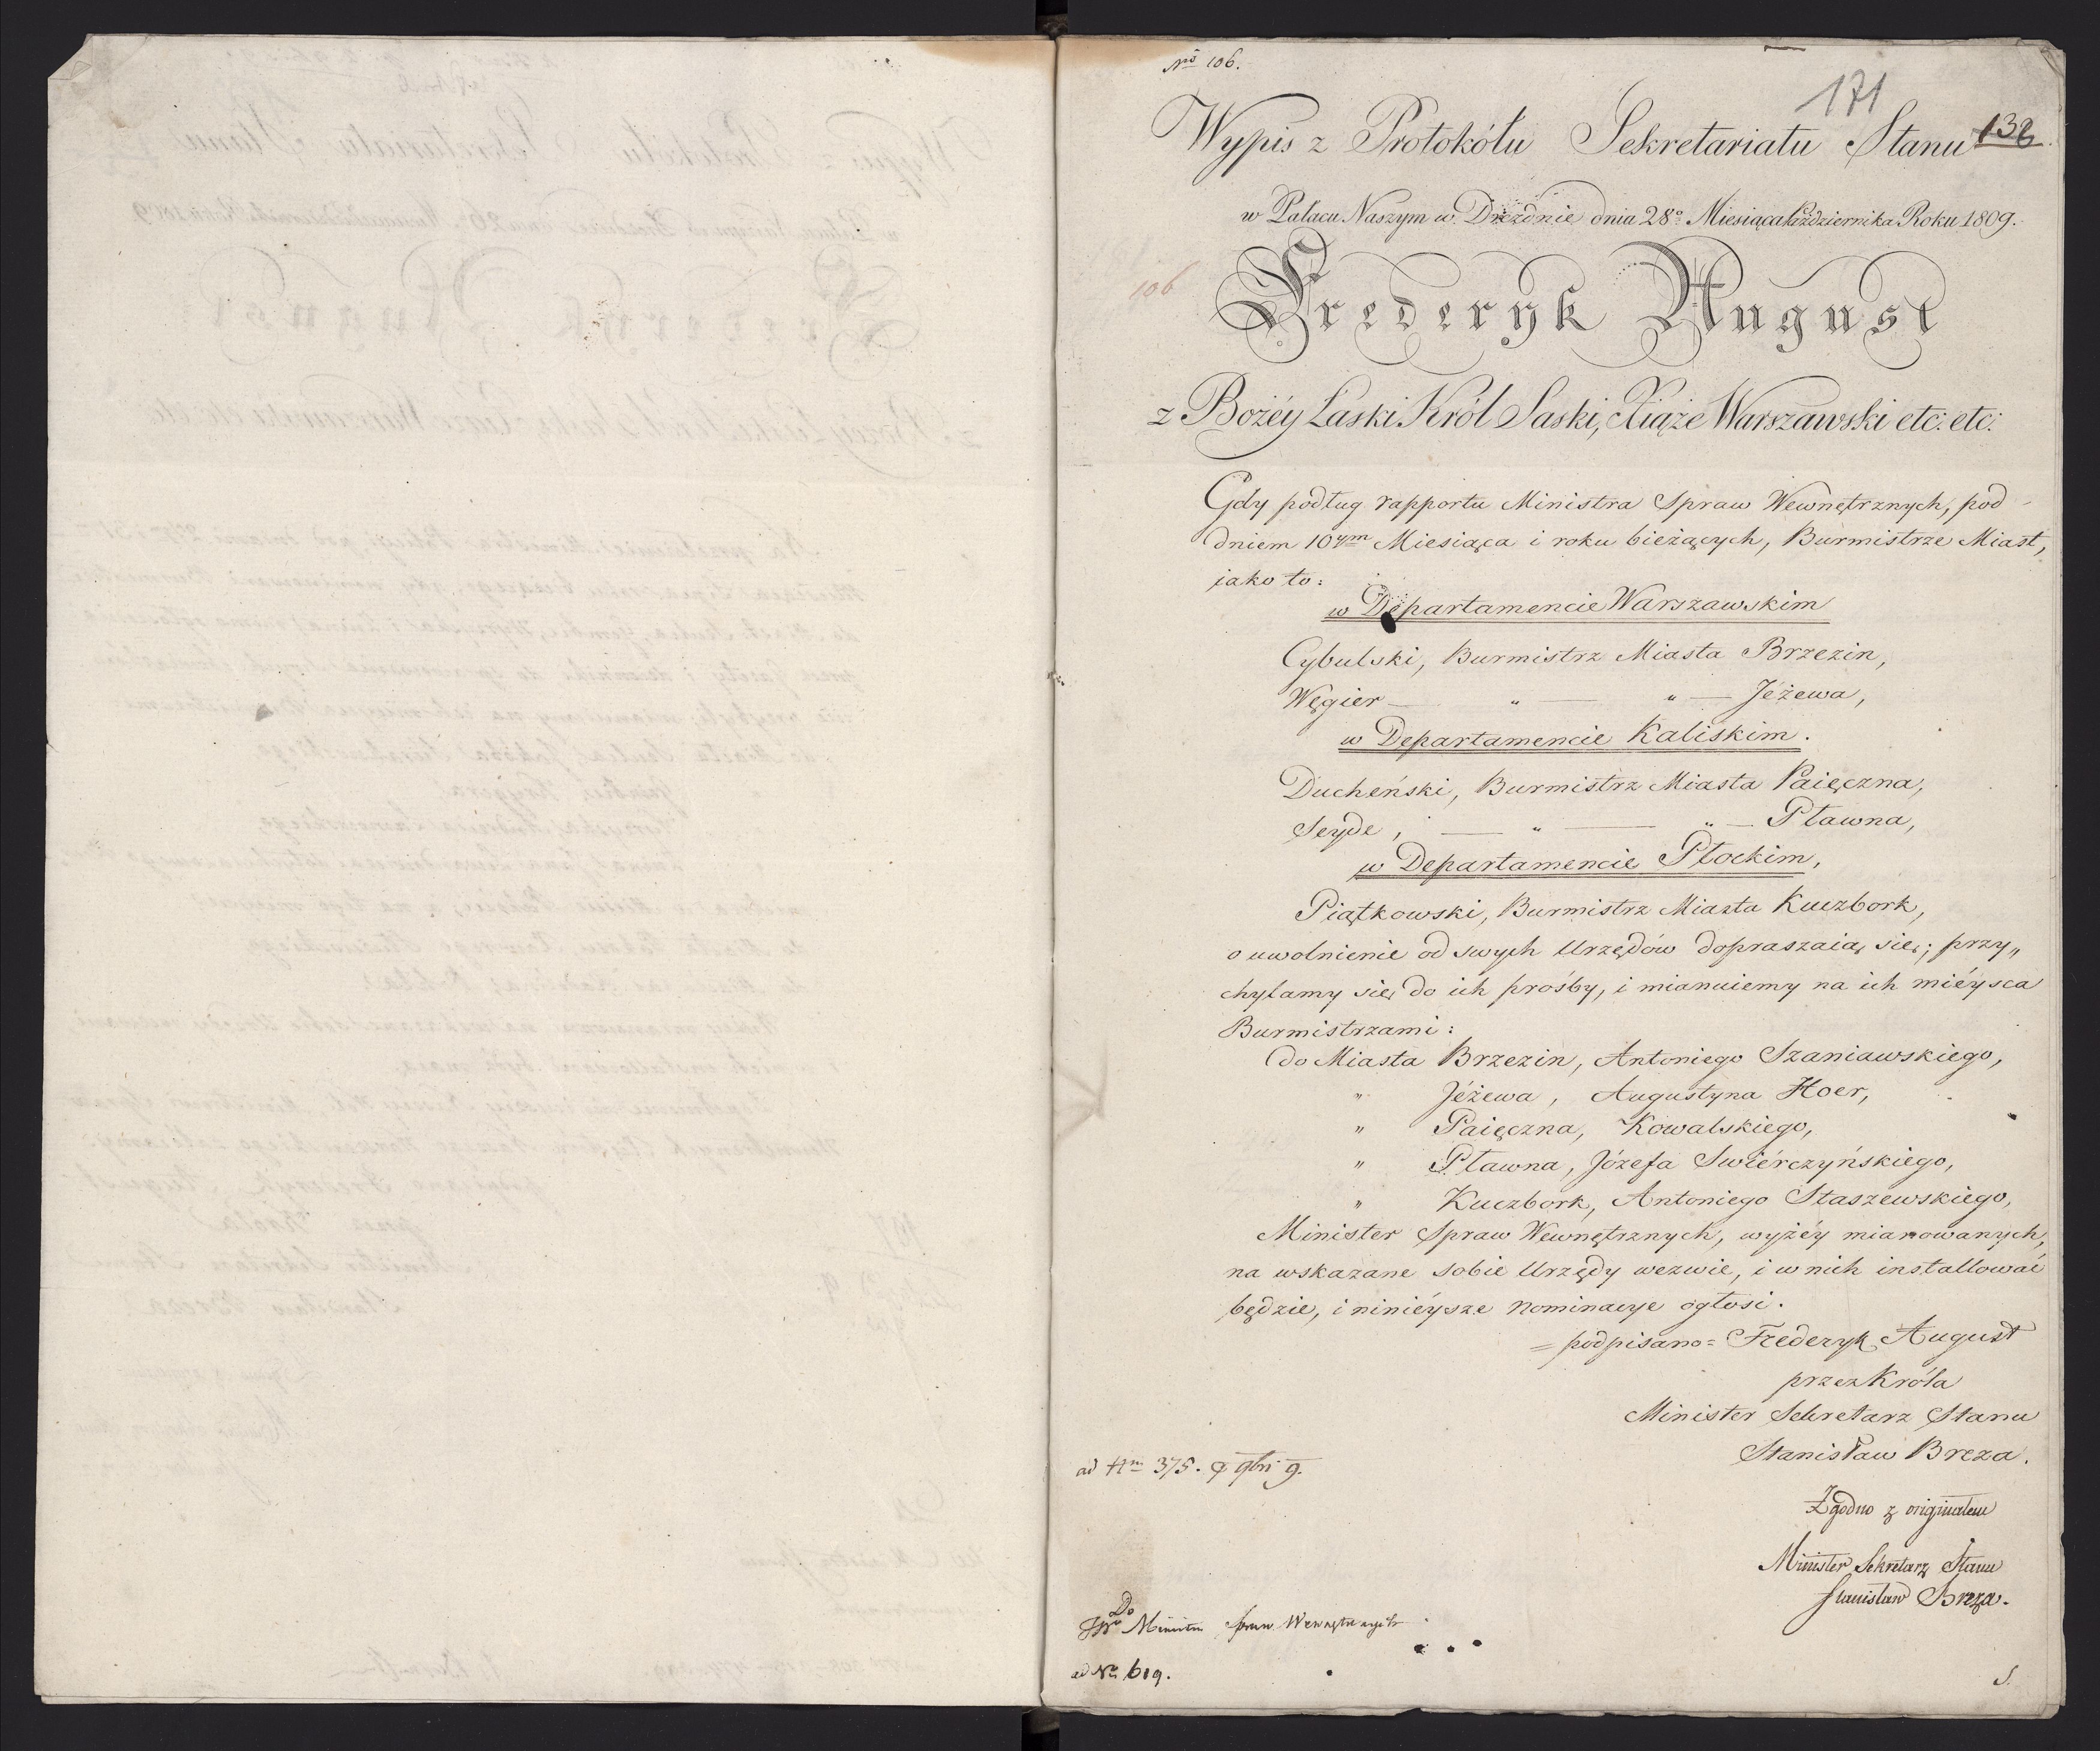 No 106.
171
Wypis z Protokółu Sekretariatu Stanu 138.
w Pałacu Naszym w Dreźdnie dnia 28o Miesiąca Października Roku 1809.
106
Frederyk August
z Bożéy Łaski Król Saski, Xiąże Warszawski etc: etc:
Gdy podług rapportu Ministra Spraw Wewnętrznych, pod
dniem 10ym Miesiąca i roku bieżących, Burmistrze Miast,
iako to:
w Departamencie Warszawskim
Cybulski, Burmistrz Miasta Brzezin,
Węgier — " — " — Jéżewa,
w Departamencie Kaliskim.
Ducheński, Burmistrz Miasta Paięczna,
Seyde, — " — " — Pławna,
w Departamencie Płockim,
Piątkowski, Burmistrz Miasta Kuczbork,
o uwolnienie od swych Urzędów dopraszaią się; przy„
chylamy się do ich prośby, i mianuiemy na ich miéysca
Burmistrzami:
do Miasta Brzezin, Antoniego Szaniawskiego,
" Jéżewa, Augustyna Hoer,
" Paięczna, Kowalskiego,
" Pławna, Józefa Swiérczyńskiego,
" Kuczbork, Antoniego Staszewskiego,
Minister Spraw Wewnętrznych, wyżéy mianowanych,
na wskazane sobie Urzędy wezwie, i w nich installować
będzie, i ninieysze nominacye ogłosi.
= podpisano = Frederyk August
przez Króla
Minister Sekretarz Stanu
Stanisław Breza.
ad 375. 9bri 9.
Zgodno z originałem
Minister Sekretarz Stanu
Stanisław Breza.
Do
JWo Ministra Spraw Wewnętrznych
ad No 619.
S.